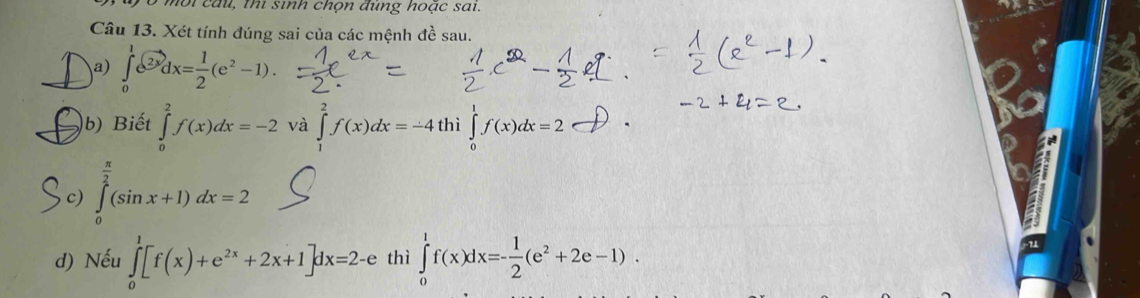 mỗi câu, thí sinh chọn đúng hoặc sai.
Câu 13. Xét tính đúng sai của các mệnh đề sau.
Đ a) ∫₀¹ e²ˣdx=1/2(e²−1). = 1/2 e²ˣ = 1/2 e² − 1/2 e⁰. = 1/2 (e² − 1).
−2 + 4 = 2.
Đ b) Biết ∫₀² f(x)dx = −2 và ∫₁² f(x)dx = −4 thì ∫₀¹ f(x)dx = 2 Đ.
S c) ∫₀^(π/2) (sin x + 1) dx = 2 S
d) Nếu ∫₀¹ [f(x)+e²ˣ+2x+1]dx=2-e thì ∫₀¹ f(x)dx=-1/2(e²+2e−1).
TL-